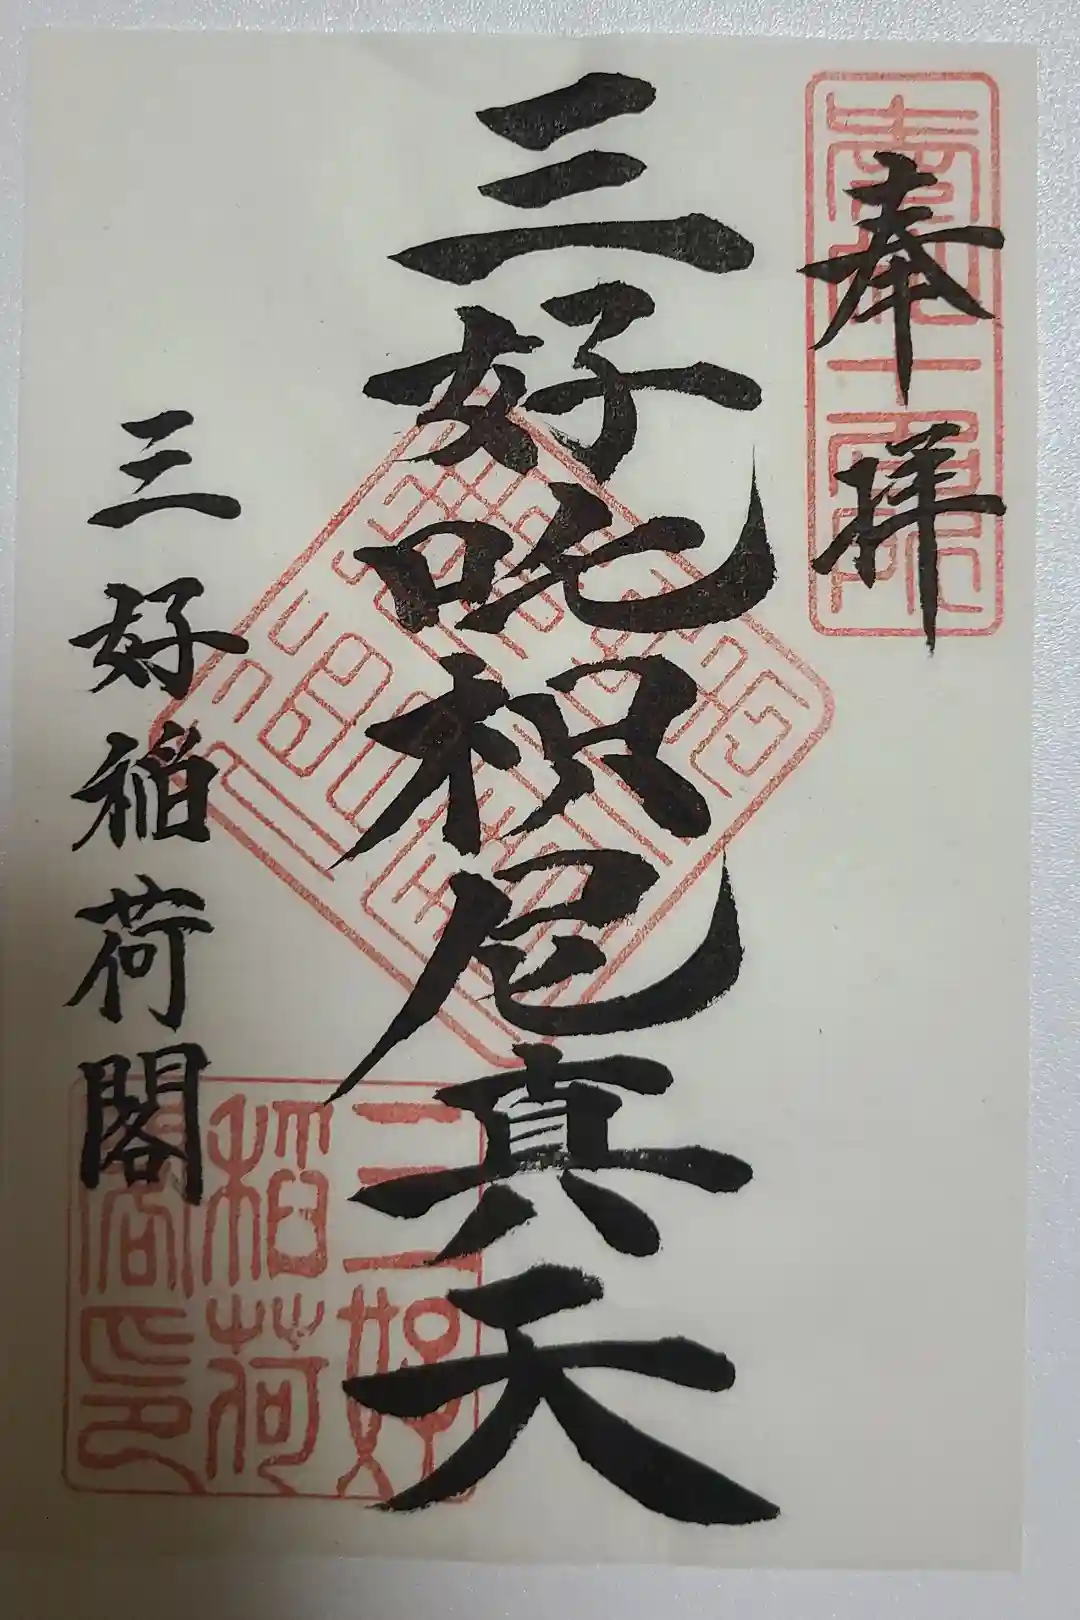 奉拝
三好吒枳尼真天
三好稲荷閣
三好
稲荷
閣印